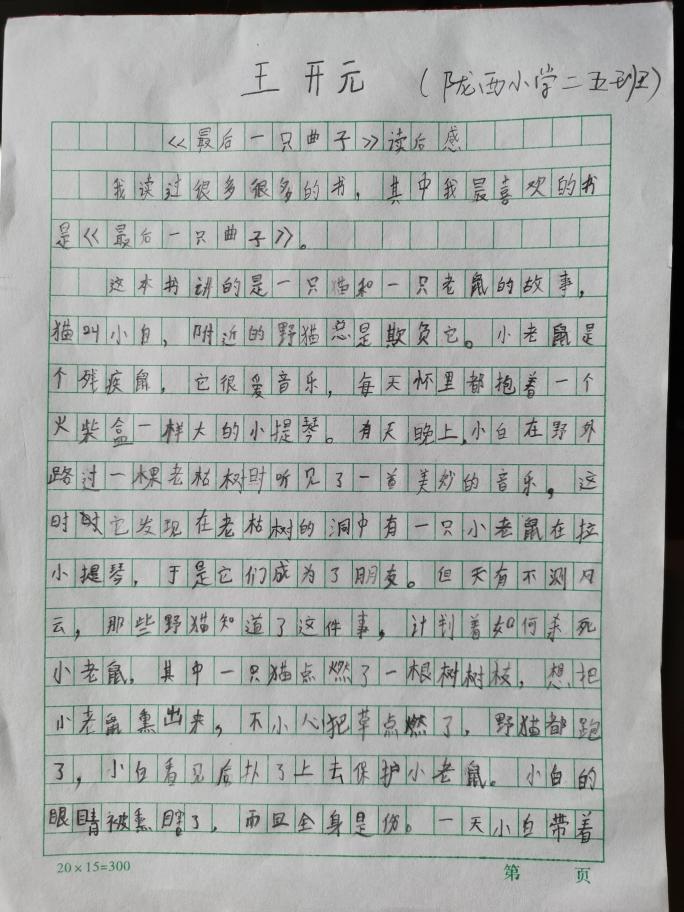 王开元 （陇西小学二五班）
《最后一只曲子》读后感
我读过很多很多的书，其中我最喜欢的书
是《最后一只曲子》。
这本书讲的是一只猫和一只老鼠的故事，
猫叫小白，附近的野猫总是欺负它。小老鼠是
个残疾鼠，它很爱音乐，每天怀里都抱着一个
火柴盒一样大的小提琴。有天晚上，小白在野外
路过一棵老枯树时听见了一首美妙的音乐，这
时时它发现在老枯树的洞中有一只小老鼠在拉
小提琴，于是它们成为了朋友。但天有不测风
云，那些野猫知道了这件事，计划着如何杀死
小老鼠，其中一只猫点燃了一根树树枝，想把
小老鼠熏出来，不小心把草点燃了，野猫都跑
了，小白看见后扑了上去保护小老鼠。小白的
眼睛被熏瞎了，而且全身是伤。一天小白带着
20×15=300 第 页